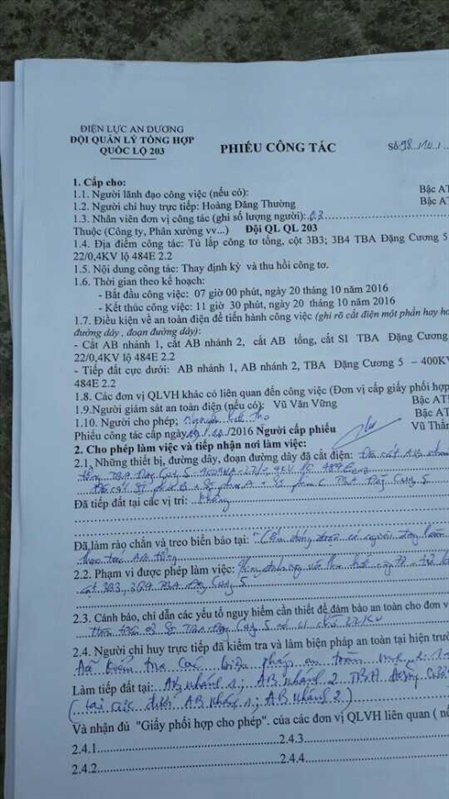 ĐIỆN LỰC AN DƯƠNG
ĐỘI QUẢN LÝ TỔNG HỢP
QUỐC LỘ 203
PHIẾU CÔNG TÁC
Số: 98
1. Cấp cho:
1.1. Người lãnh đạo công việc (nếu có): Bậc AT
1.2. Người chỉ huy trực tiếp: Hoàng Đăng Thường Bậc AT
1.3. Nhân viên đơn vị công tác (ghi số lượng người): 03
Thuộc (Công ty, Phân xưởng vv...) Đội QL QL 203
1.4. Địa điểm công tác: Tủ lắp công tơ tổng, cột 3B3; 3B4 TBA Đặng Cương 5
22/0,4KV lộ 484E 2.2
1.5. Nội dung công tác: Thay định kỳ và thu hồi công tơ.
1.6. Thời gian theo kế hoạch:
- Bắt đầu công việc: 07 giờ 00 phút, ngày 20 tháng 10 năm 2016
- Kết thúc công việc: 11 giờ 30 phút, ngày 20 tháng 10 năm 2016
1.7. Điều kiện về an toàn điện để tiến hành công việc (ghi rõ cắt điện một phần hay ho
đường dây, đoạn đường dây):
- Cắt AB nhánh 1, cắt AB nhánh 2, cắt AB tổng, cắt SI TBA Đặng Cương
22/0,4KV lộ 484E 2.2
- Tiếp đất cực dưới: AB nhánh 1, AB nhánh 2, TBA Đặng Cương 5 – 400KV
484E 2.2
1.8. Các đơn vị QLVH khác có liên quan đến công việc (Đơn vị cấp giấy phối hợp
1.9.Người giám sát an toàn điện (nếu có): Vũ Văn Vững Bậc AT
1.10. Người cho phép: Bậc AT
Phiếu công tác cấp ngày /2016 Người cấp phiếu Vũ Thàn
2. Cho phép làm việc và tiếp nhận nơi làm việc:
2.1. Những thiết bị, đường dây, đoạn đường dây đã cắt điện: Đã cắt AB
Đã tiếp đất tại các vị trí: Không
Đã làm rào chắn và treo biển báo tại:
AB tổng
2.2. Phạm vi được phép làm việc:
cột 3B3, 3B4 TBA 5
2.3. Cảnh báo, chỉ dẫn các yếu tố nguy hiểm cần thiết để đảm bảo an toàn cho đơn v
2.4. Người chỉ huy trực tiếp đã kiểm tra và làm biện pháp an toàn tại hiện trườ
Đã kiểm tra các biện pháp an toàn
Làm tiếp đất tại: AB nhánh 1; AB nhánh 2 TBA
(tại cực dưới AB nhánh 1; AB nhánh 2)
Và nhận đủ "Giấy phối hợp cho phép". của các đơn vị QLVH liên quan ( nế
2.4.1 2.4.3
2.4.2 2.4.4